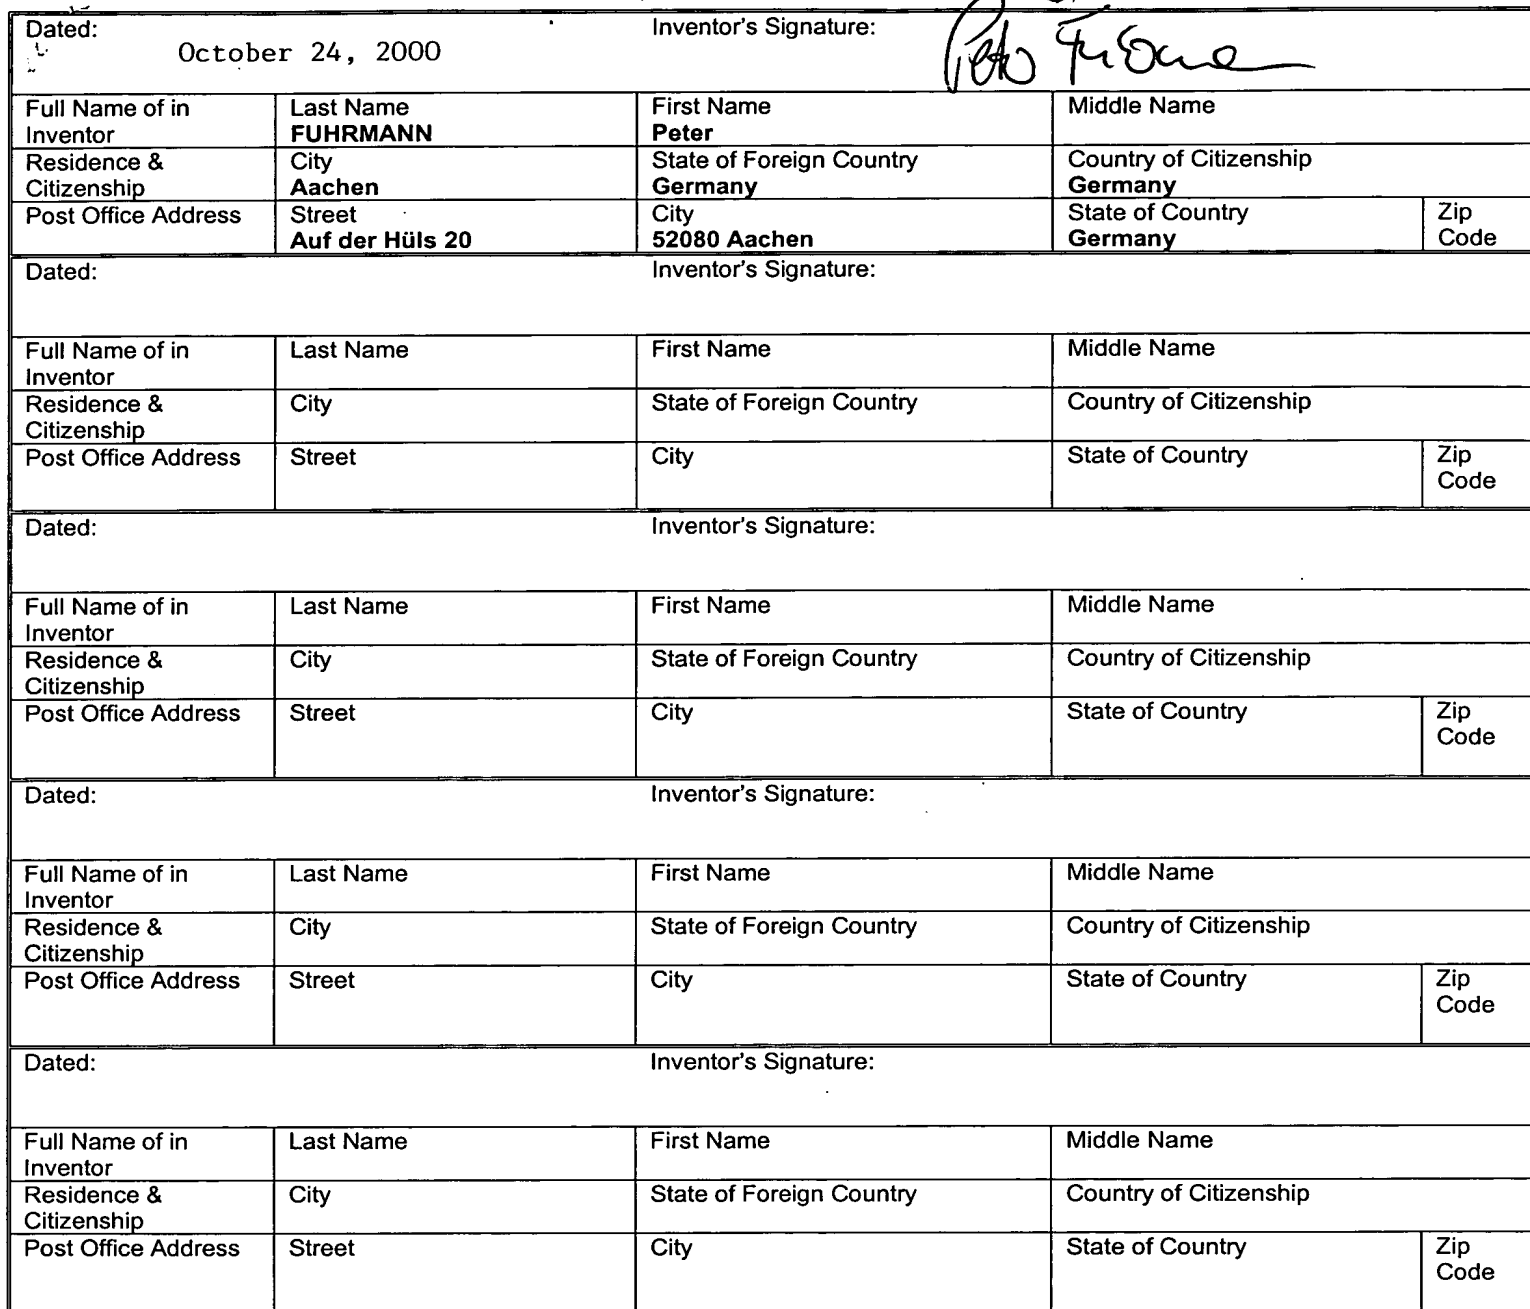 Dated: Inventor's Signature:
October 24, 2000
Full Name of in Inventor Last Name FUHRMANN First Name Peter Middle Name
Residence & Citizenship City Aachen State of Foreign Country Germany Country of Citizenship Germany
Post Office Address Street Auf der Hüls 20 City 52080 Aachen State of Country Germany Zip Code
Dated: Inventor's Signature:
Full Name of in Inventor Last Name First Name Middle Name
Residence & Citizenship City State of Foreign Country Country of Citizenship
Post Office Address Street City State of Country Zip Code
Dated: Inventor's Signature:
Full Name of in Inventor Last Name First Name Middle Name
Residence & Citizenship City State of Foreign Country Country of Citizenship
Post Office Address Street City State of Country Zip Code
Dated: Inventor's Signature:
Full Name of in Inventor Last Name First Name Middle Name
Residence & Citizenship City State of Foreign Country Country of Citizenship
Post Office Address Street City State of Country Zip Code
Dated: Inventor's Signature:
Full Name of in Inventor Last Name First Name Middle Name
Residence & Citizenship City State of Foreign Country Country of Citizenship
Post Office Address Street City State of Country Zip Code